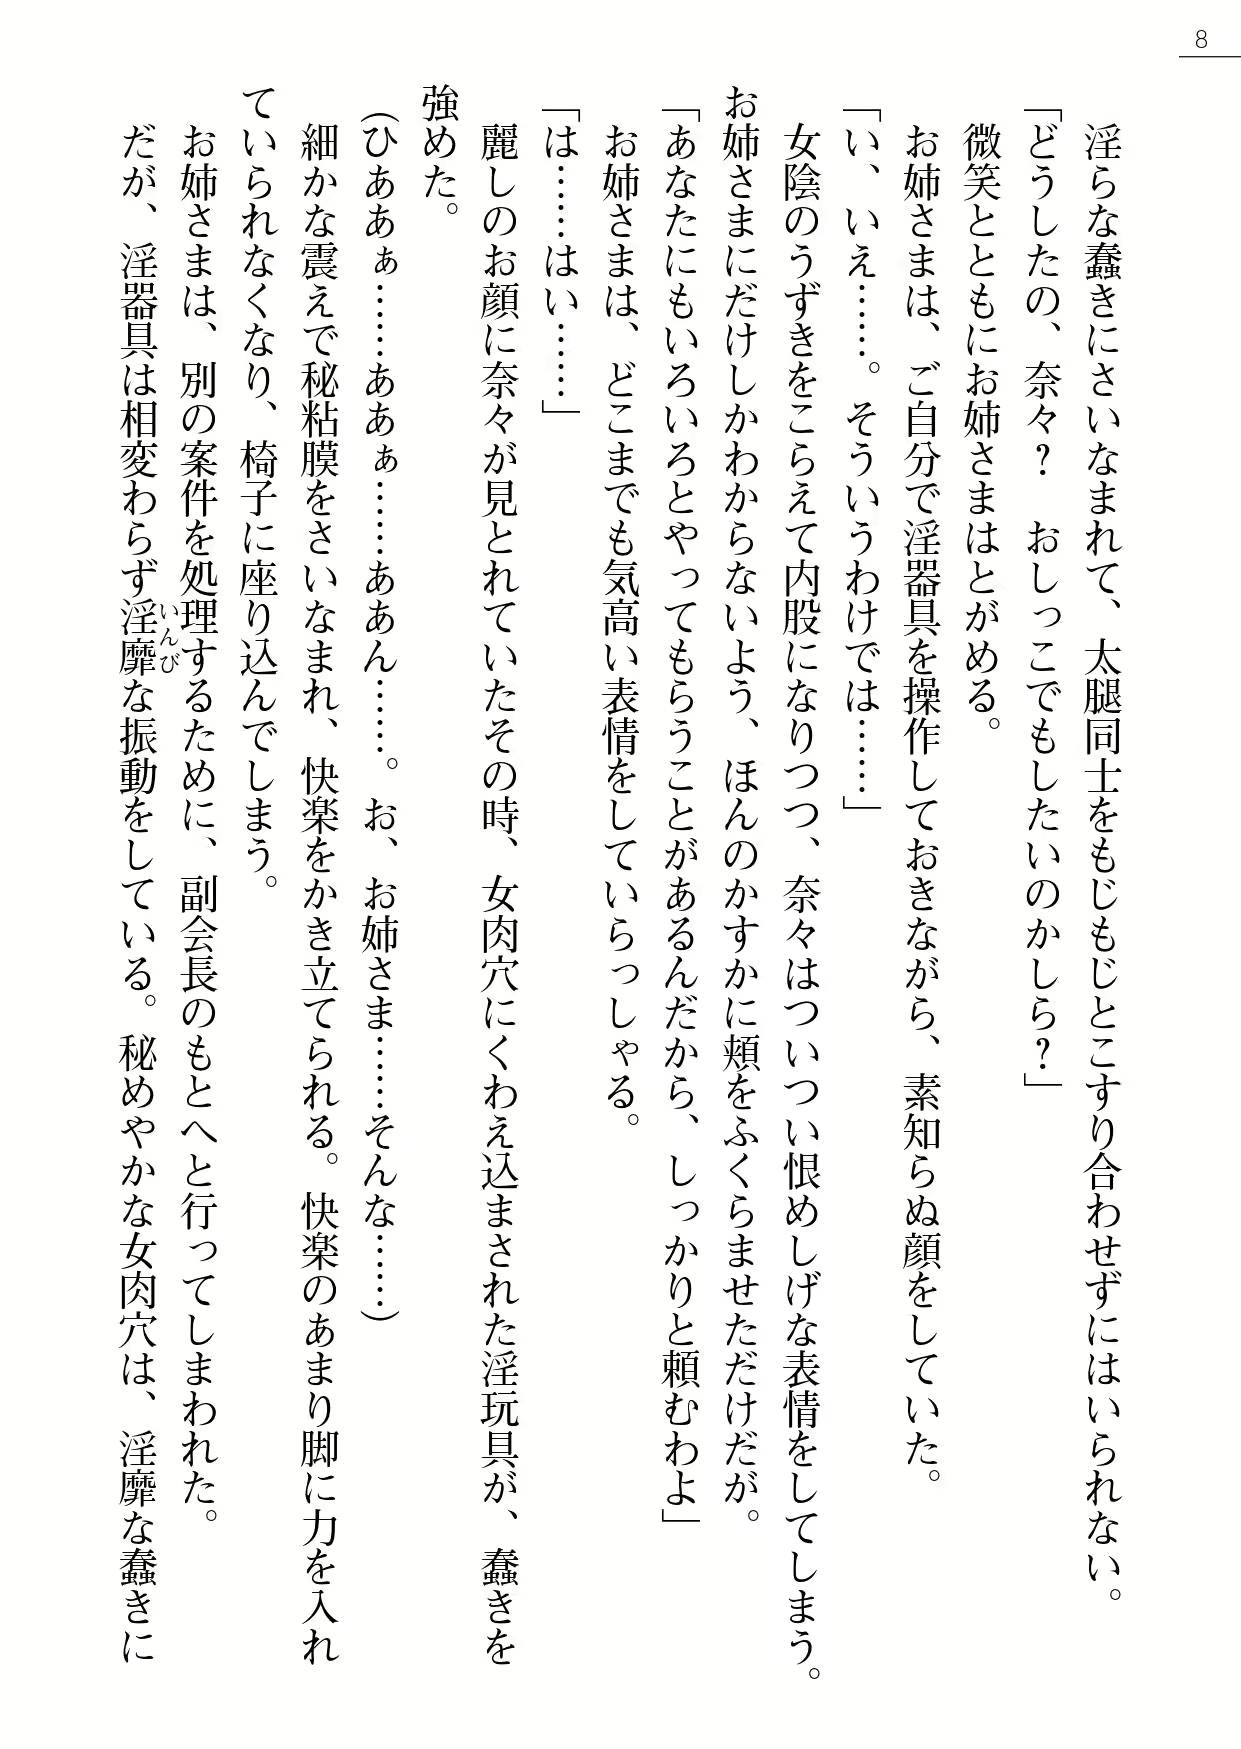 8
淫らな蠢きにさいなまれて、太腿同士をもじもじとこすり合わせずにはいられない。
「どうしたの、奈々？　おしっこでもしたいのかしら？」
微笑とともにお姉さまはとがめる。
お姉さまは、ご自分で淫器具を操作しておきながら、素知らぬ顔をしていた。
「い、いえ……。そういうわけでは……」
女陰のうずきをこらえて内股になりつつ、奈々はついつい恨めしげな表情をしてしまう。
お姉さまにだけしかわからないよう、ほんのかすかに頬をふくらませただけだが。
「あなたにもいろいろとやってもらうことがあるんだから、しっかりと頼むわよ」
お姉さまは、どこまでも気高い表情をしていらっしゃる。
「は……はい……」
麗しのお顔に奈々が見とれていたその時、女肉穴にくわえ込まされた淫玩具が、蠢きを
強めた。
（ひああぁ……ああぁ……ああん……。お、お姉さま……そんな……）
細かな震えで秘粘膜をさいなまれ、快楽をかき立てられる。快楽のあまり脚に力を入れ
ていられなくなり、椅子に座り込んでしまう。
お姉さまは、別の案件を処理するために、副会長のもとへと行ってしまわれた。
だが、淫器具は相変わらず淫靡いんびな振動をしている。秘めやかな女肉穴は、淫靡な蠢きに